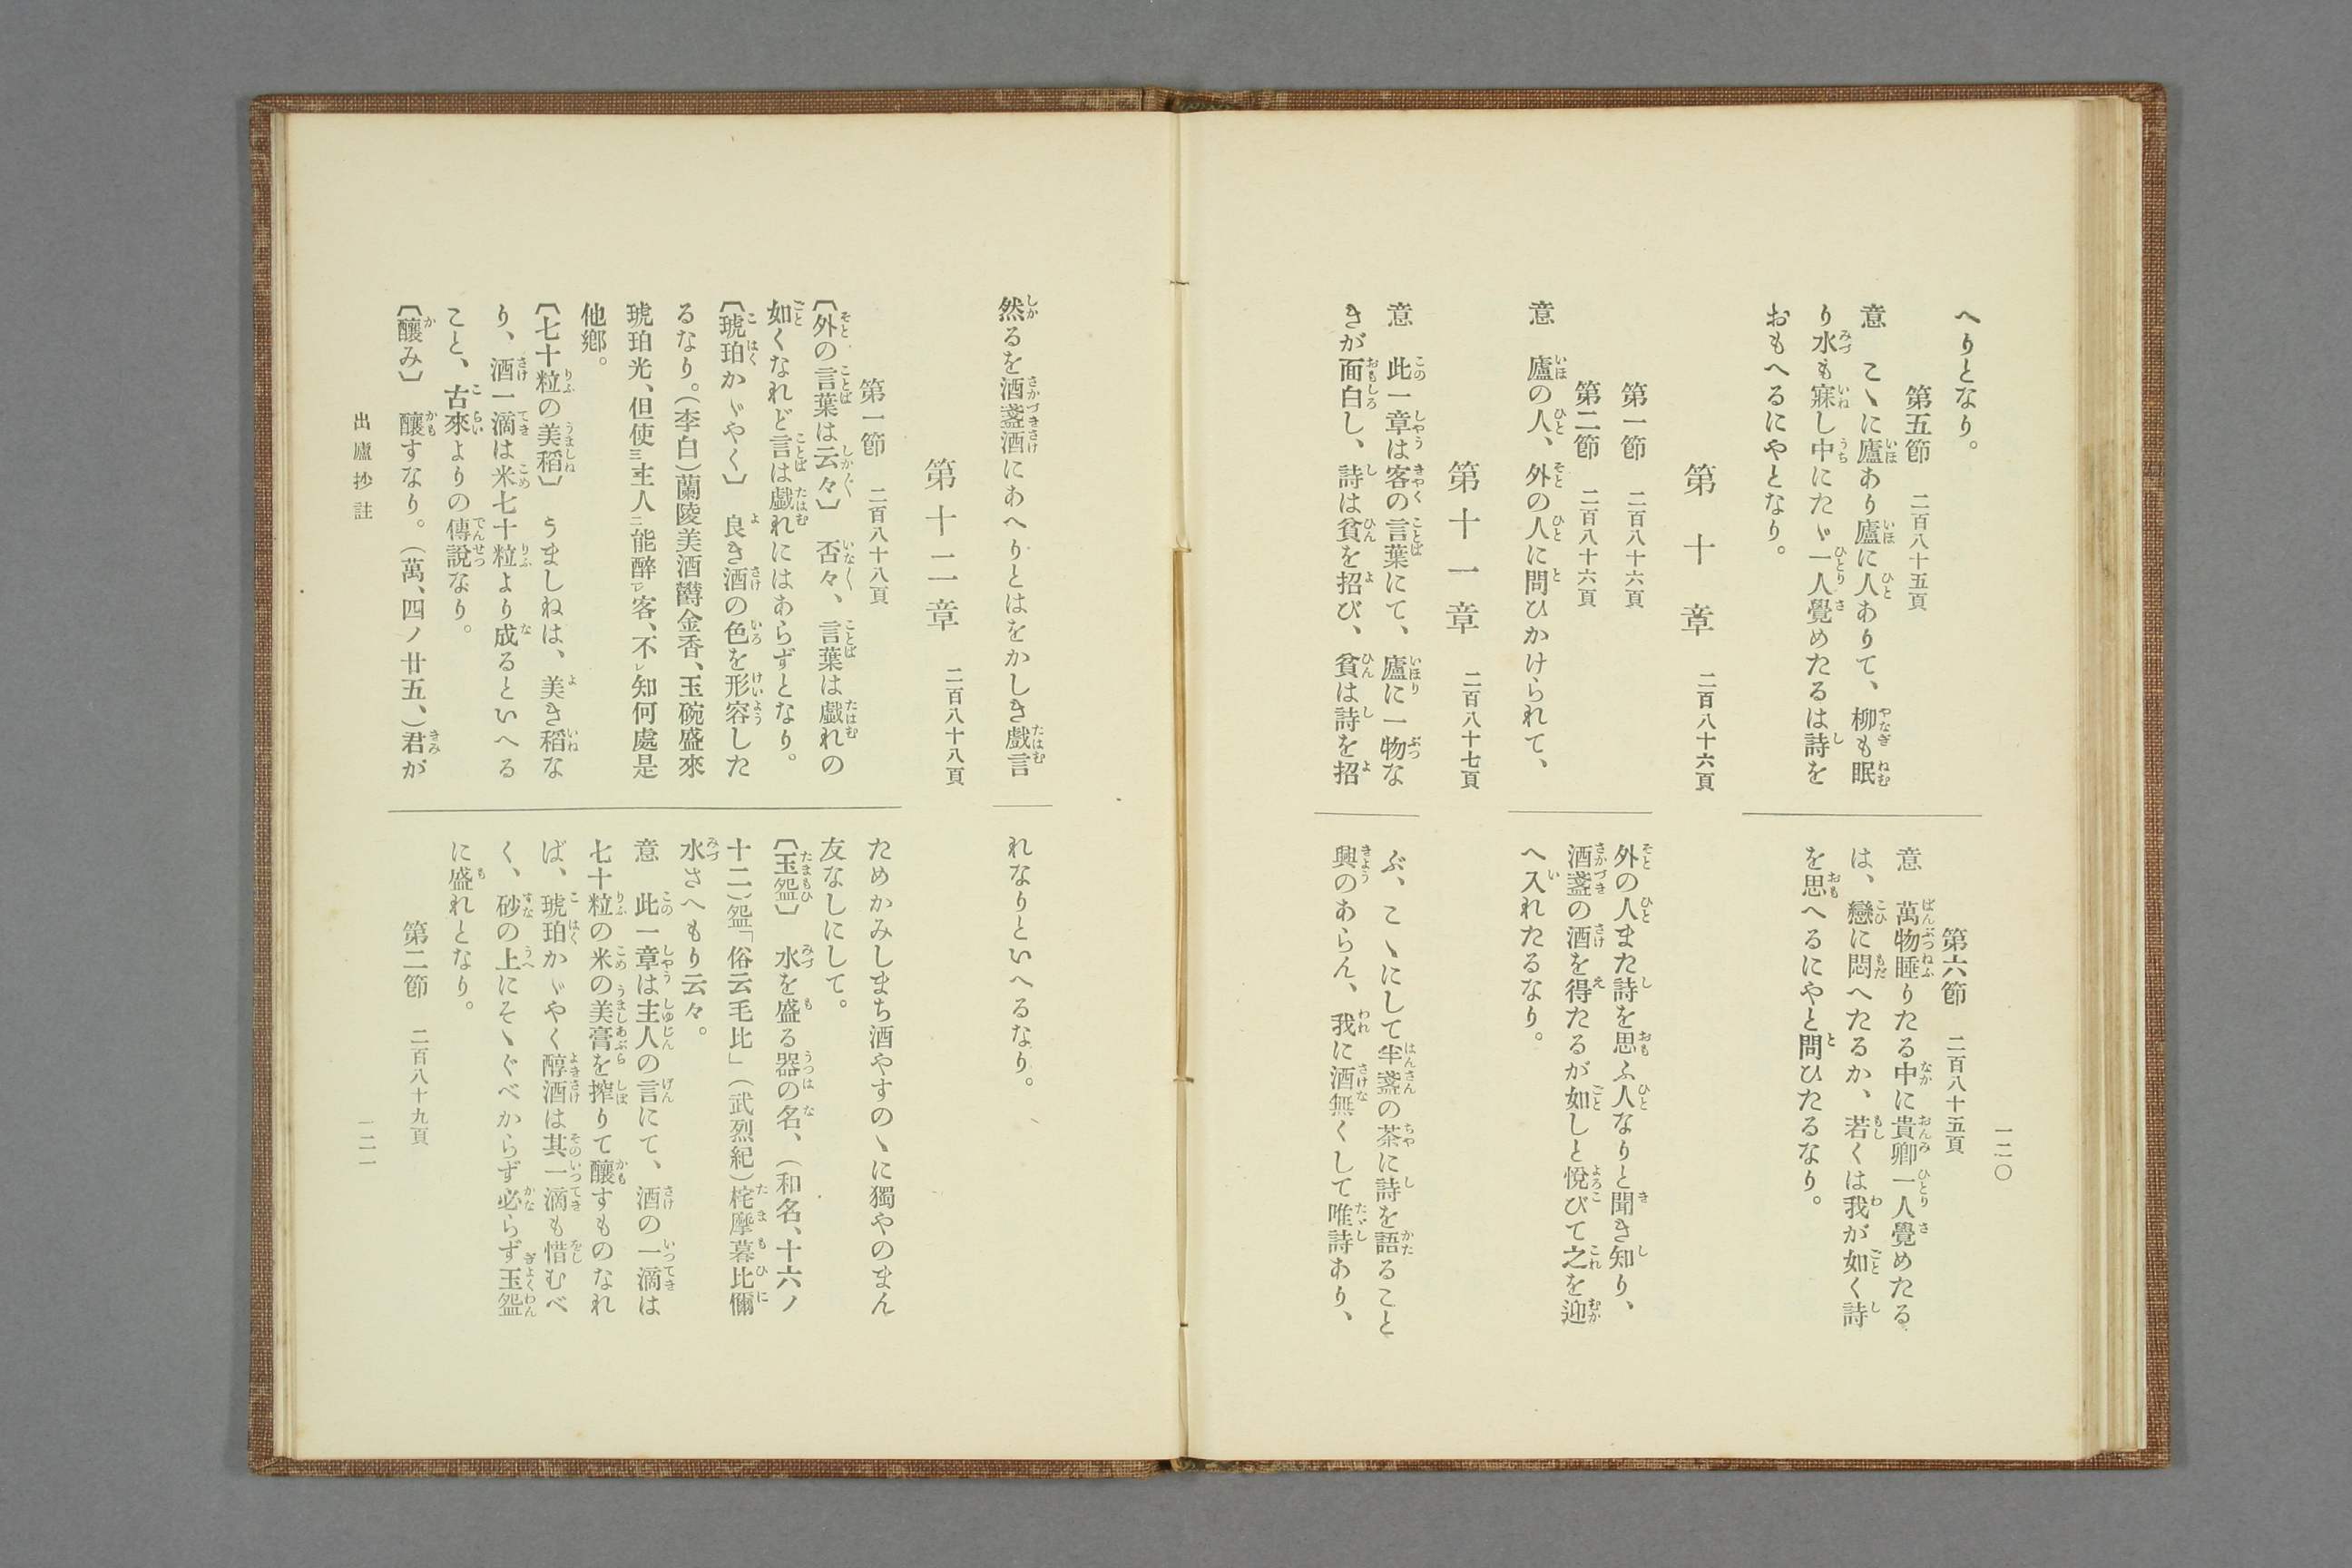 一二〇
へりとなり。
第五節 二百八十五頁
意 こゝに廬あり廬に人ありて、柳も眠
り水も寐し中にたゞ一人覺めたるは詩を
おもへるにやとなり。
第六節 二百八十五頁
意 萬物睡りたる中に貴卿一人覺めたる
は、戀に悶へたるか、若くは我が如く詩
を思へるにやと問ひたるなり。
第十章 二百八十六頁
第一節 二百八十六頁
第二節 二百八十六頁
意 廬の人、外の人に問ひかけられて、
外の人また詩を思ふ人なりと聞き知り、
酒盞の酒を得たるが如しと悅びて之を迎
へ入れたるなり。
第十一章 二百八十七頁
意 此一章は客の言葉にて、廬に一物な
きが面白し、詩は貧を招び、貧は詩を招
ぶ、こゝにして半盞の茶に詩を語ること
興のあらん、我に酒無くして唯詩あり、
然るを酒盞酒にあへりとはをかしき戲言
れなりといへるなり。
第十二章 二百八十八頁
第一節 二百八十八頁
〔外の言葉は云々〕 否々、言葉は戲れの
如くなれど言は戲れにはあらずとなり。
〔琥珀かゞやく〕 良き酒の色を形容した
るなり。(李白)蘭陵美酒鬱金香、玉碗盛來
琥珀光、但使三主人二能醉一レ客、不レ知何處是
他鄕。
〔七十粒の美稻〕 うましねは、美き稻な
り、酒一滴は米七十粒より成るといへる
こと、古來よりの傳說なり。
〔釀み〕 釀すなり。(萬、四ノ廿五、)君が
ためかみしまち酒やすのゝに獨やのまん
友なしにして。
〔玉盌〕 水を盛る器の名、(和名、十六ノ
十二)盌「俗云毛比」(武烈紀)柁摩暮比儞
水さへもり云々。
意 此一章は主人の言にて、酒の一滴は
七十粒の米の美膏を搾りて釀すものなれ
ば、琥珀かゞやく醇酒は其一滴も惜むべ
く、砂の上にそゝぐべからず必らず玉盌
に盛れとなり。
第二節 二百八十九頁
出廬抄註
一二一